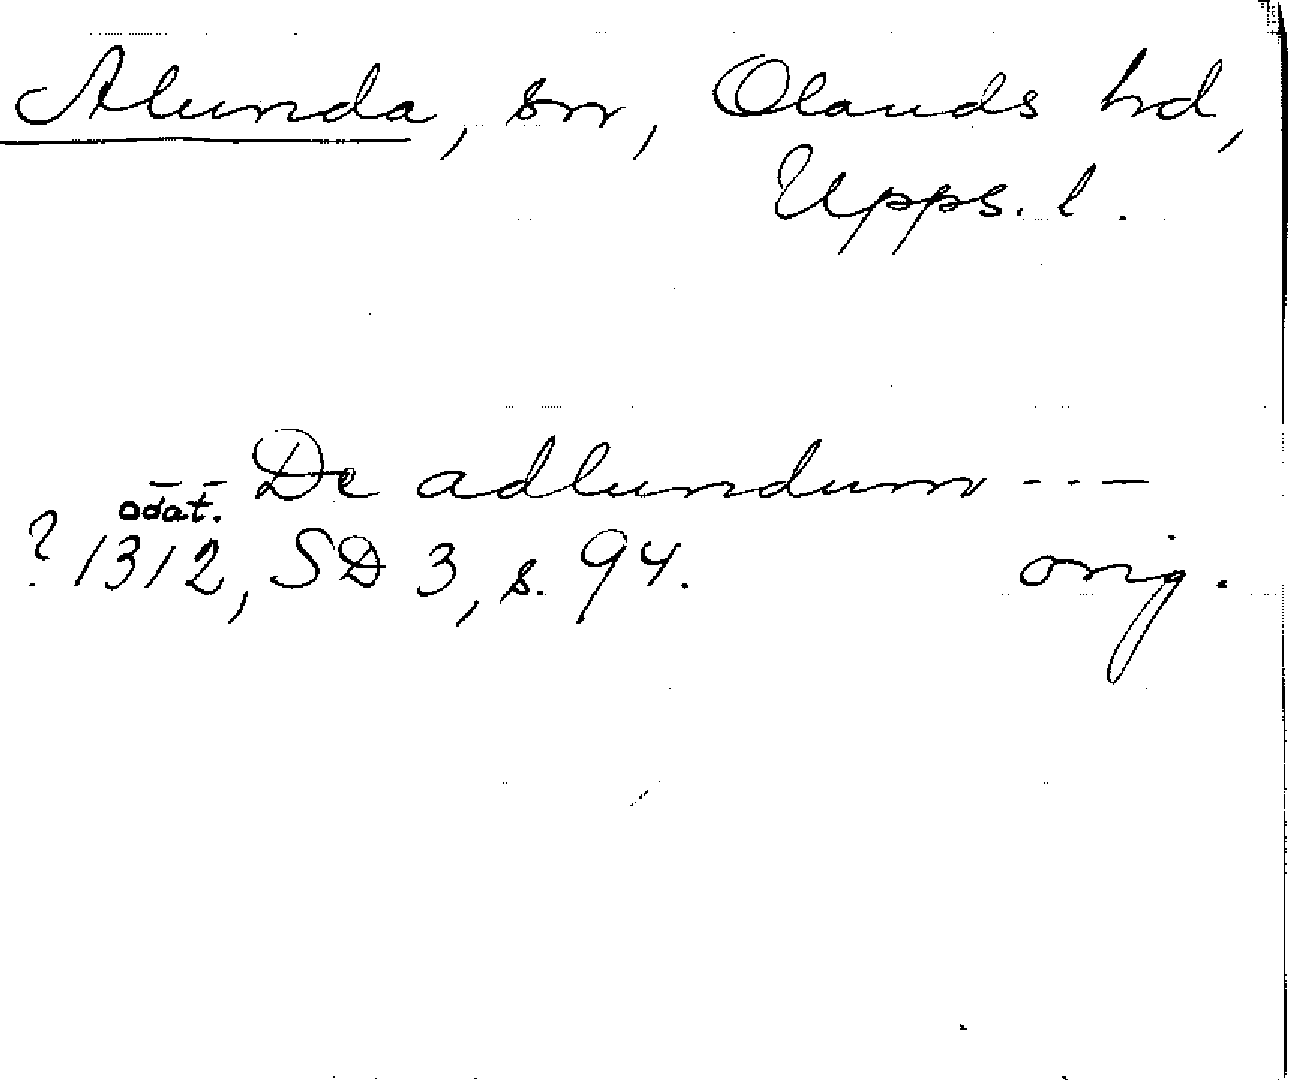 Alunda, sn, Olands hd,
Upps. l.
-- De adlundum ---
odat.
? 1312, SD 3, s. 94. orig.